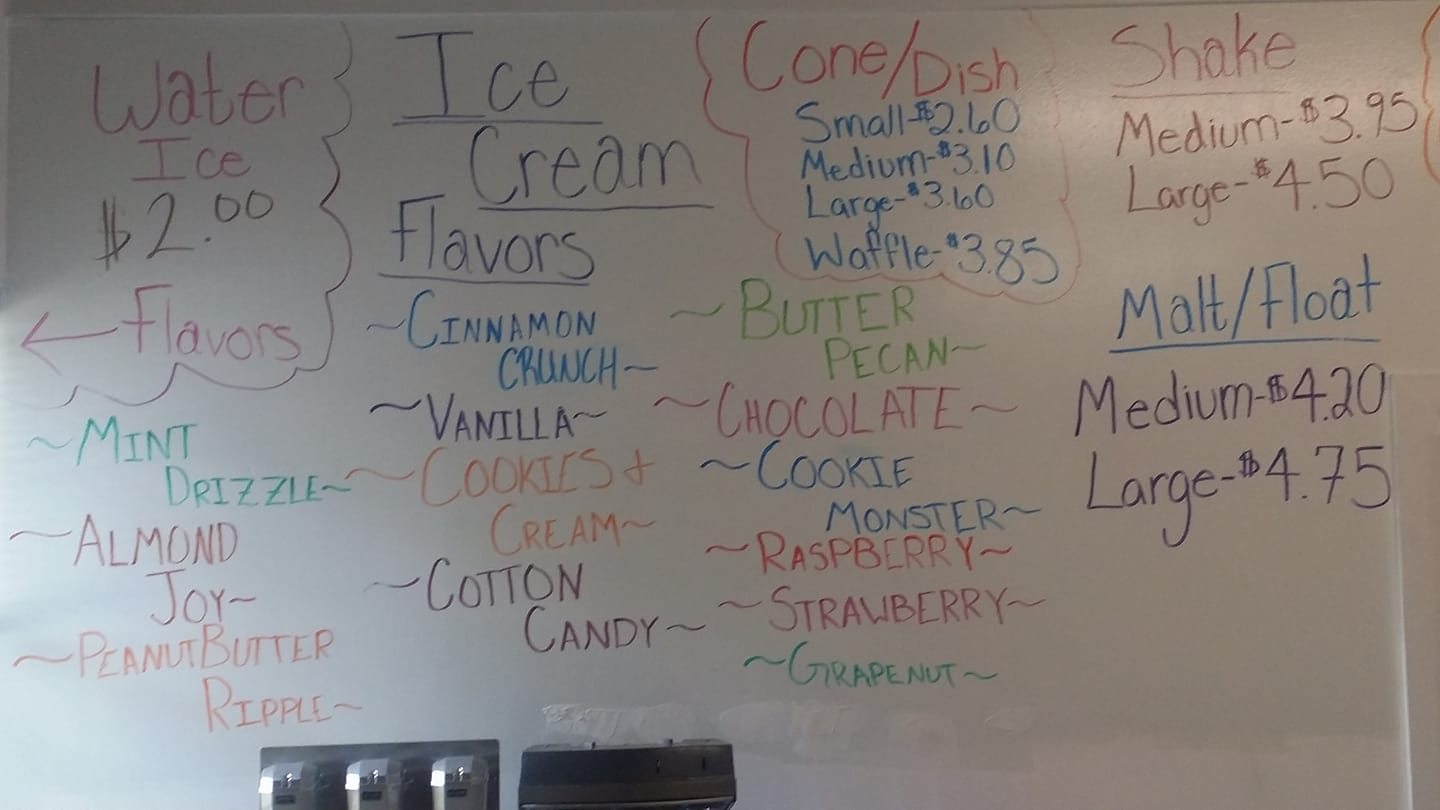 Water
Ice
$2.00
← Flavors
Ice
Cream
Flavors
~CINNAMON
CRUNCH~
~VANILLA~
~COOKIES +
CREAM~
~COTTON
CANDY~
~MINT
DRIZZLE~
~ALMOND
JOY~
~PEANUTBUTTER
RIPPLE~
Cone/Dish
Small-$2.60
Medium-$3.10
Large-$3.60
Waffle-$3.85
~BUTTER
PECAN~
~CHOCOLATE~
~COOKIE
MONSTER~
~RASPBERRY~
~STRAWBERRY~
~GRAPENUT~
Shake
Medium-$3.95
Large-$4.50
Malt/Float
Medium-$4.20
Large-$4.75